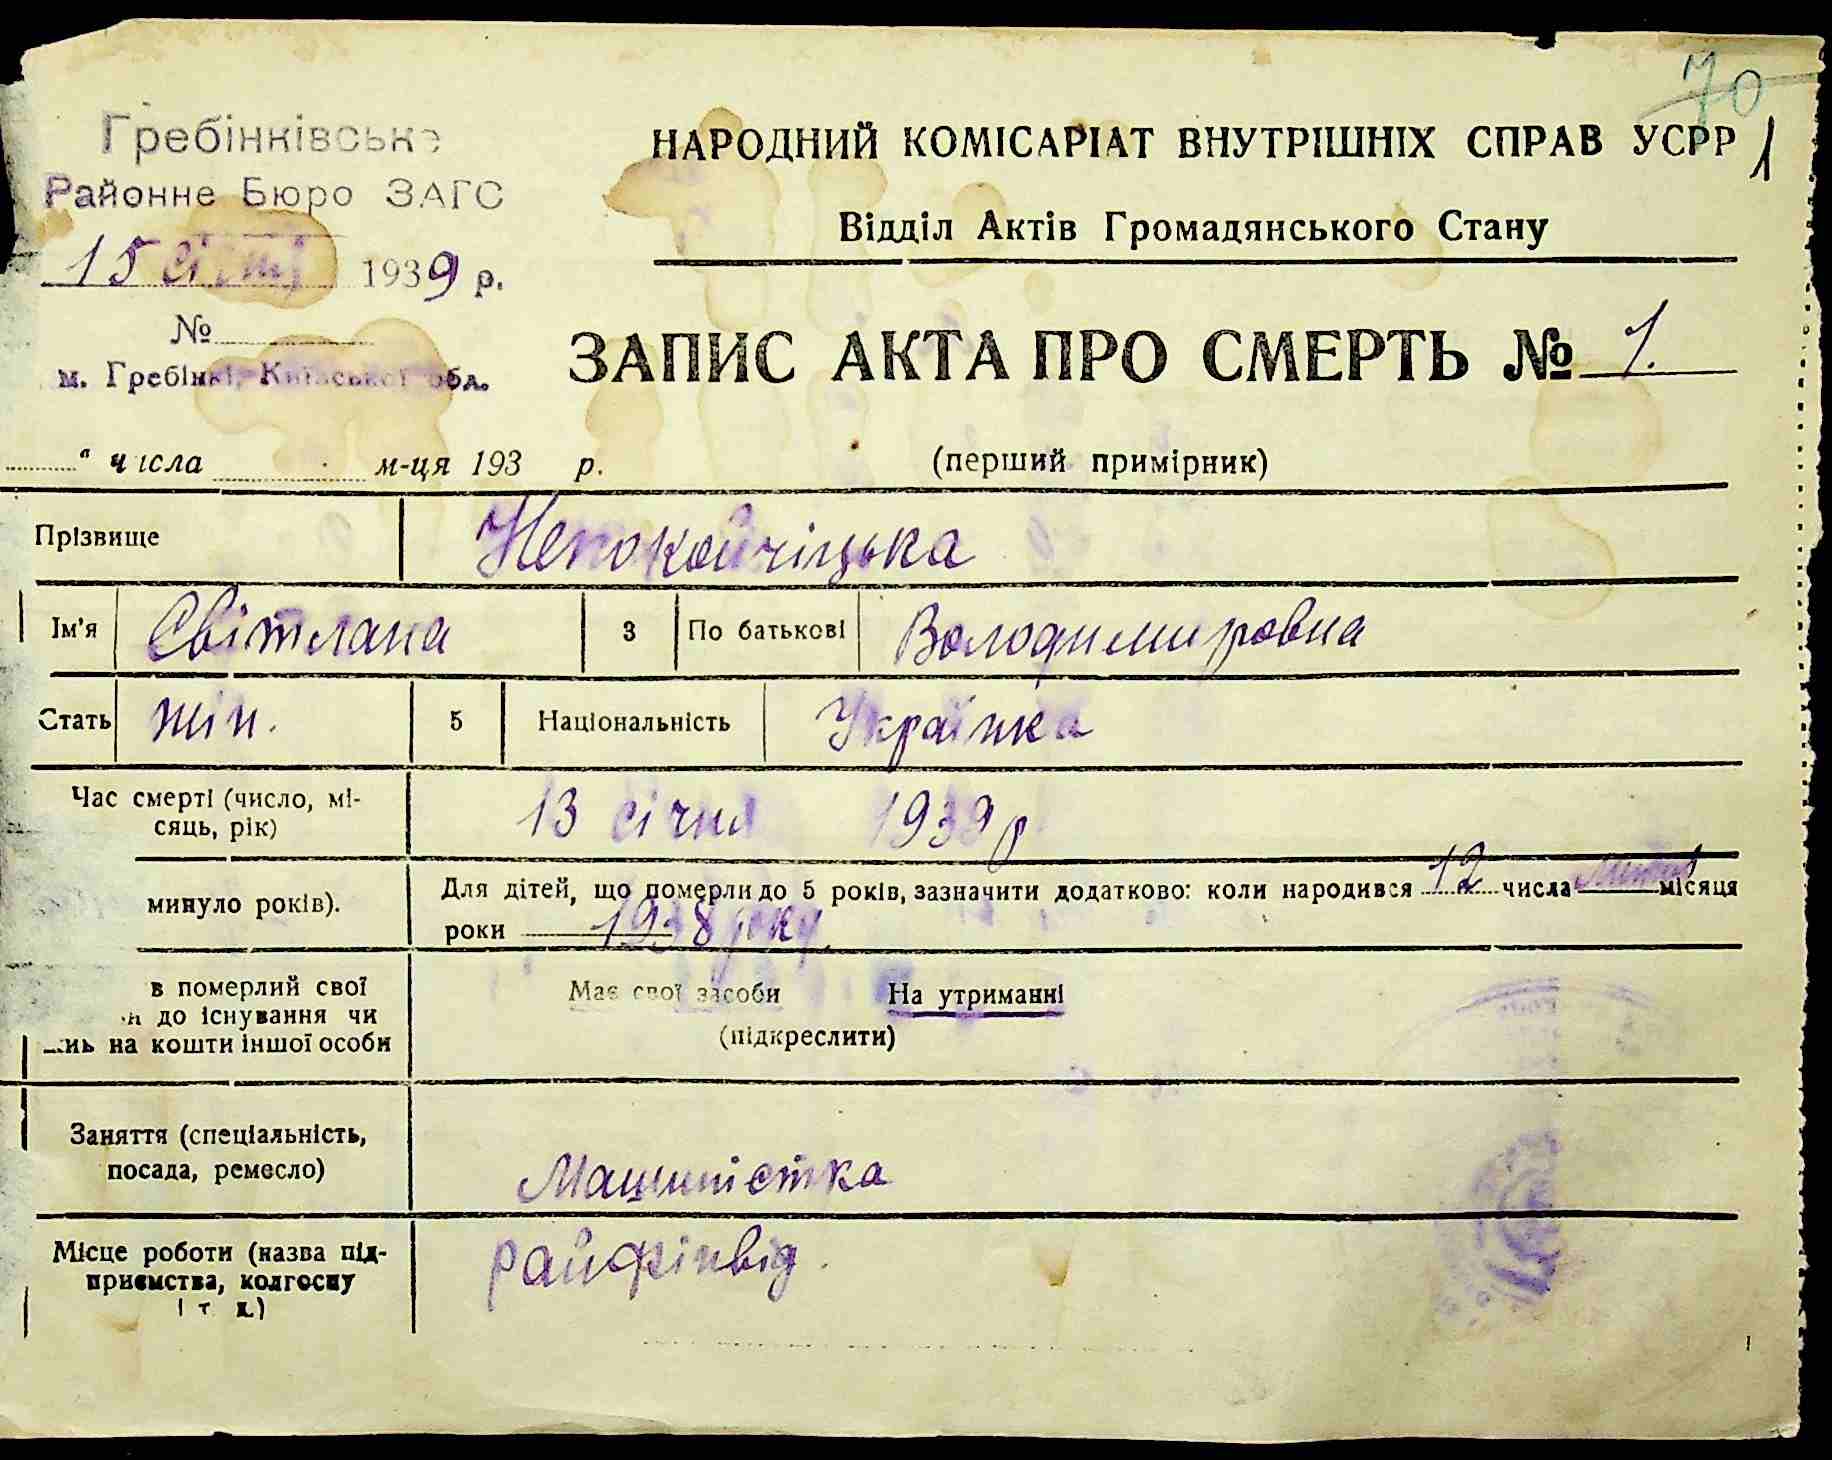 70
Гребінківське
Районне Бюро ЗАГС
15 січня 1939 р.
№
м. Гребінкі, Київської обл.
НАРОДНИЙ КОМІСАРІАТ ВНУТРІШНІХ СПРАВ УСРР 1
Відділ Актів Громадянського Стану
ЗАПИС АКТА ПРО СМЕРТЬ № 1.
" числа м-ця 193 р. (перший примірник)
Прізвище Непокойчіцька
Ім'я Світлана 3 По батькові Володимировна
Стать жін. 5 Національність Українка
Час смерті (число, мі-
сяць, рік) 13 січня 1939 р
минуло років). Для дітей, що померли до 5 років, зазначити додатково: коли народився 12 числа місяця
роки 1938 року.
в померлий свої Має свої засоби На утриманні
до існування чи (підкреслити)
на кошти іншої особи
Заняття (спеціальність,
посада, ремесло) Машиністка
Місце роботи (назва під-
приємства, колгоспу
і т. д.) райфінвід.